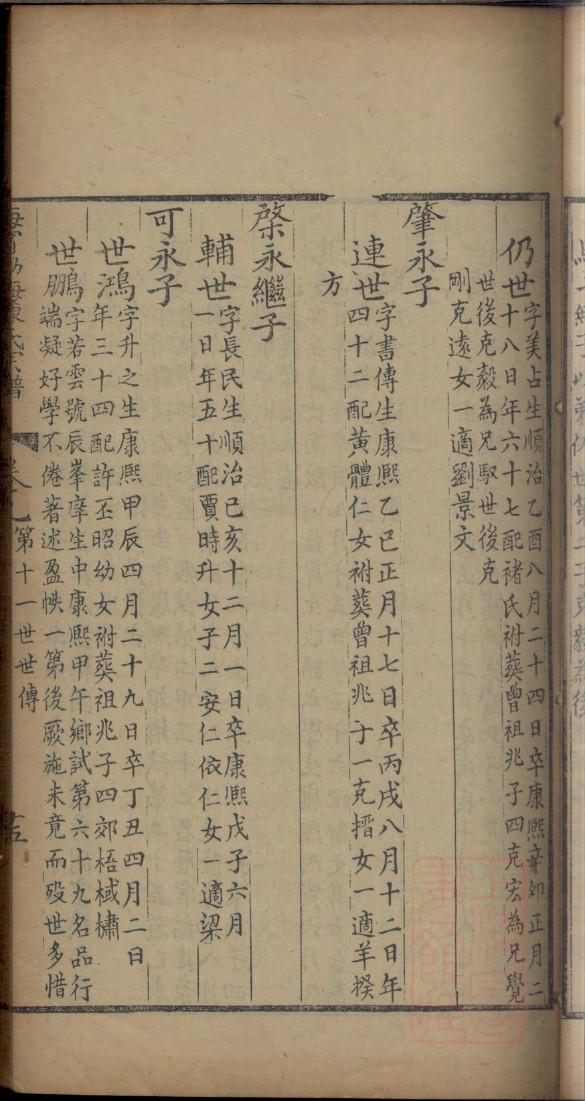 仍世字美占生順治乙酉八月二十四日卒康熙辛卯正月二
十八日年六十七配褚氏祔葬曾祖兆子四克宏為兄覺
世後克毅為兄馭世後克
剛克遠女一適劉景文
肇永子
連世字書傳生康熙乙巳正月十七日卒丙戌八月十二日年
四十二配黃體仁女祔葬曾祖兆子一克搢女一適羊揆
方
棨永繼子
輔世字長民生順治己亥十二月一日卒康熙戊子六月
一日年五十配賈時升女子二安仁依仁女一適梁
可永子
世鴻字升之生康熙甲辰四月二十九日卒丁丑四月二日
年三十四配許丕昭幼女祔葬祖兆子四郊梧棫橚
世鵬字若雲號辰峯庠生中康熙甲午鄉試第六十九名品行
端凝好學不倦著述盈帙一第後厥施未竟而歿世多惜
氏宗譜
卷
第十一世世傳